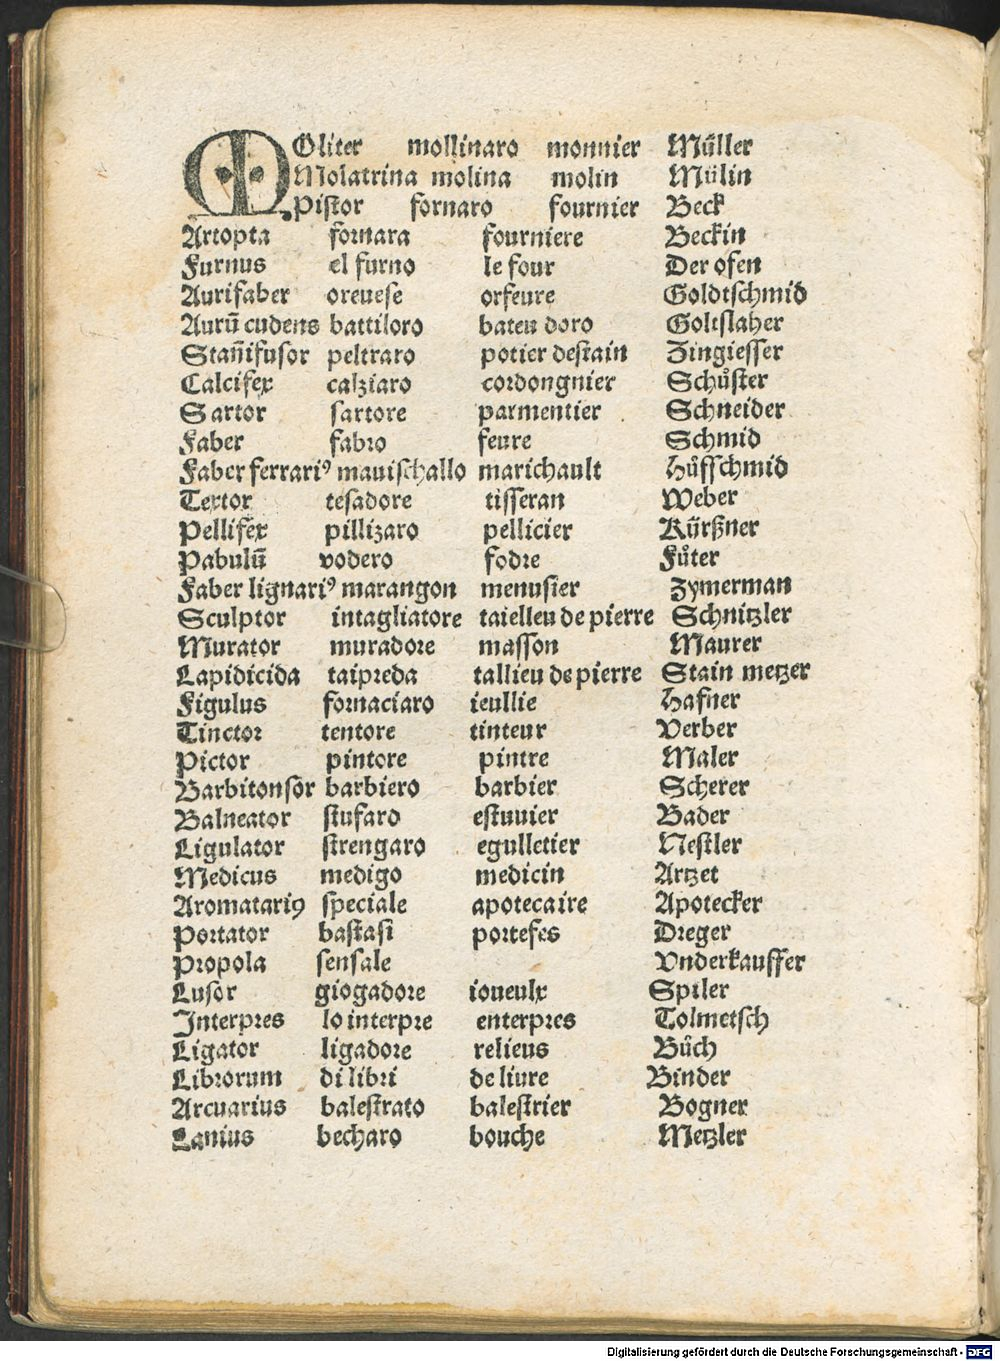 MOliter mollinaro monnier Müller
Molatrina molina molin Mülin
Pistor fornaro fournier Beck
Artopta fornara fourniere Beckin
Furnus el furno le four Der ofen
Aurifaber oreuese orfeure Goldtschmid
Aurū cudens battiloro bateu doro Goltslaher
Stan̄ifusor peltraro potier destain Zingiesser
Calcifex calziaro cordongnier Schůster
Sartor sartore parmentier Schneider
Faber fabro feure Schmid
Faber ferrariꝰ mauischallo marichault Hůfschmid
Textor tesadore tisseran Weber
Pellifex pillizaro pellicier Kürßner
Pabulū vodero fodre Fůter
Faber lignariꝰ marangon menusier Zymerman
Sculptor intagliatore taielleu de pierre Schnitzler
Murator muradore masson Maurer
Lapidicida taipreda tallieu de pierre Stain metzer
Figulus fornaciaro ieullie Hafner
Tinctor tentore tinteur Verber
Pictor pintore pintre Maler
Barbitonsor barbiero barbier Scherer
Balneator stufaro estuuier Bader
Ligulator strengaro egulletier Nestler
Medicus medigo medicin Artzet
Aromatariꝰ speciale apotecaire Apotecker
Portator bastasi portefes Dreger
Propola sensale Vnderkauffer
Lusor giogadore ioueulx Spiler
Interpres lo interpre enterpres Tolmetsch
Ligator ligadore relieus Bůch
Librorum di libri de liure Binder
Arcuarius balestrato balestrier Bogner
Lanius becharo bouche Metzler
Digitalisierung gefördert durch die Deutsche Forschungsgemeinschaft - DFG